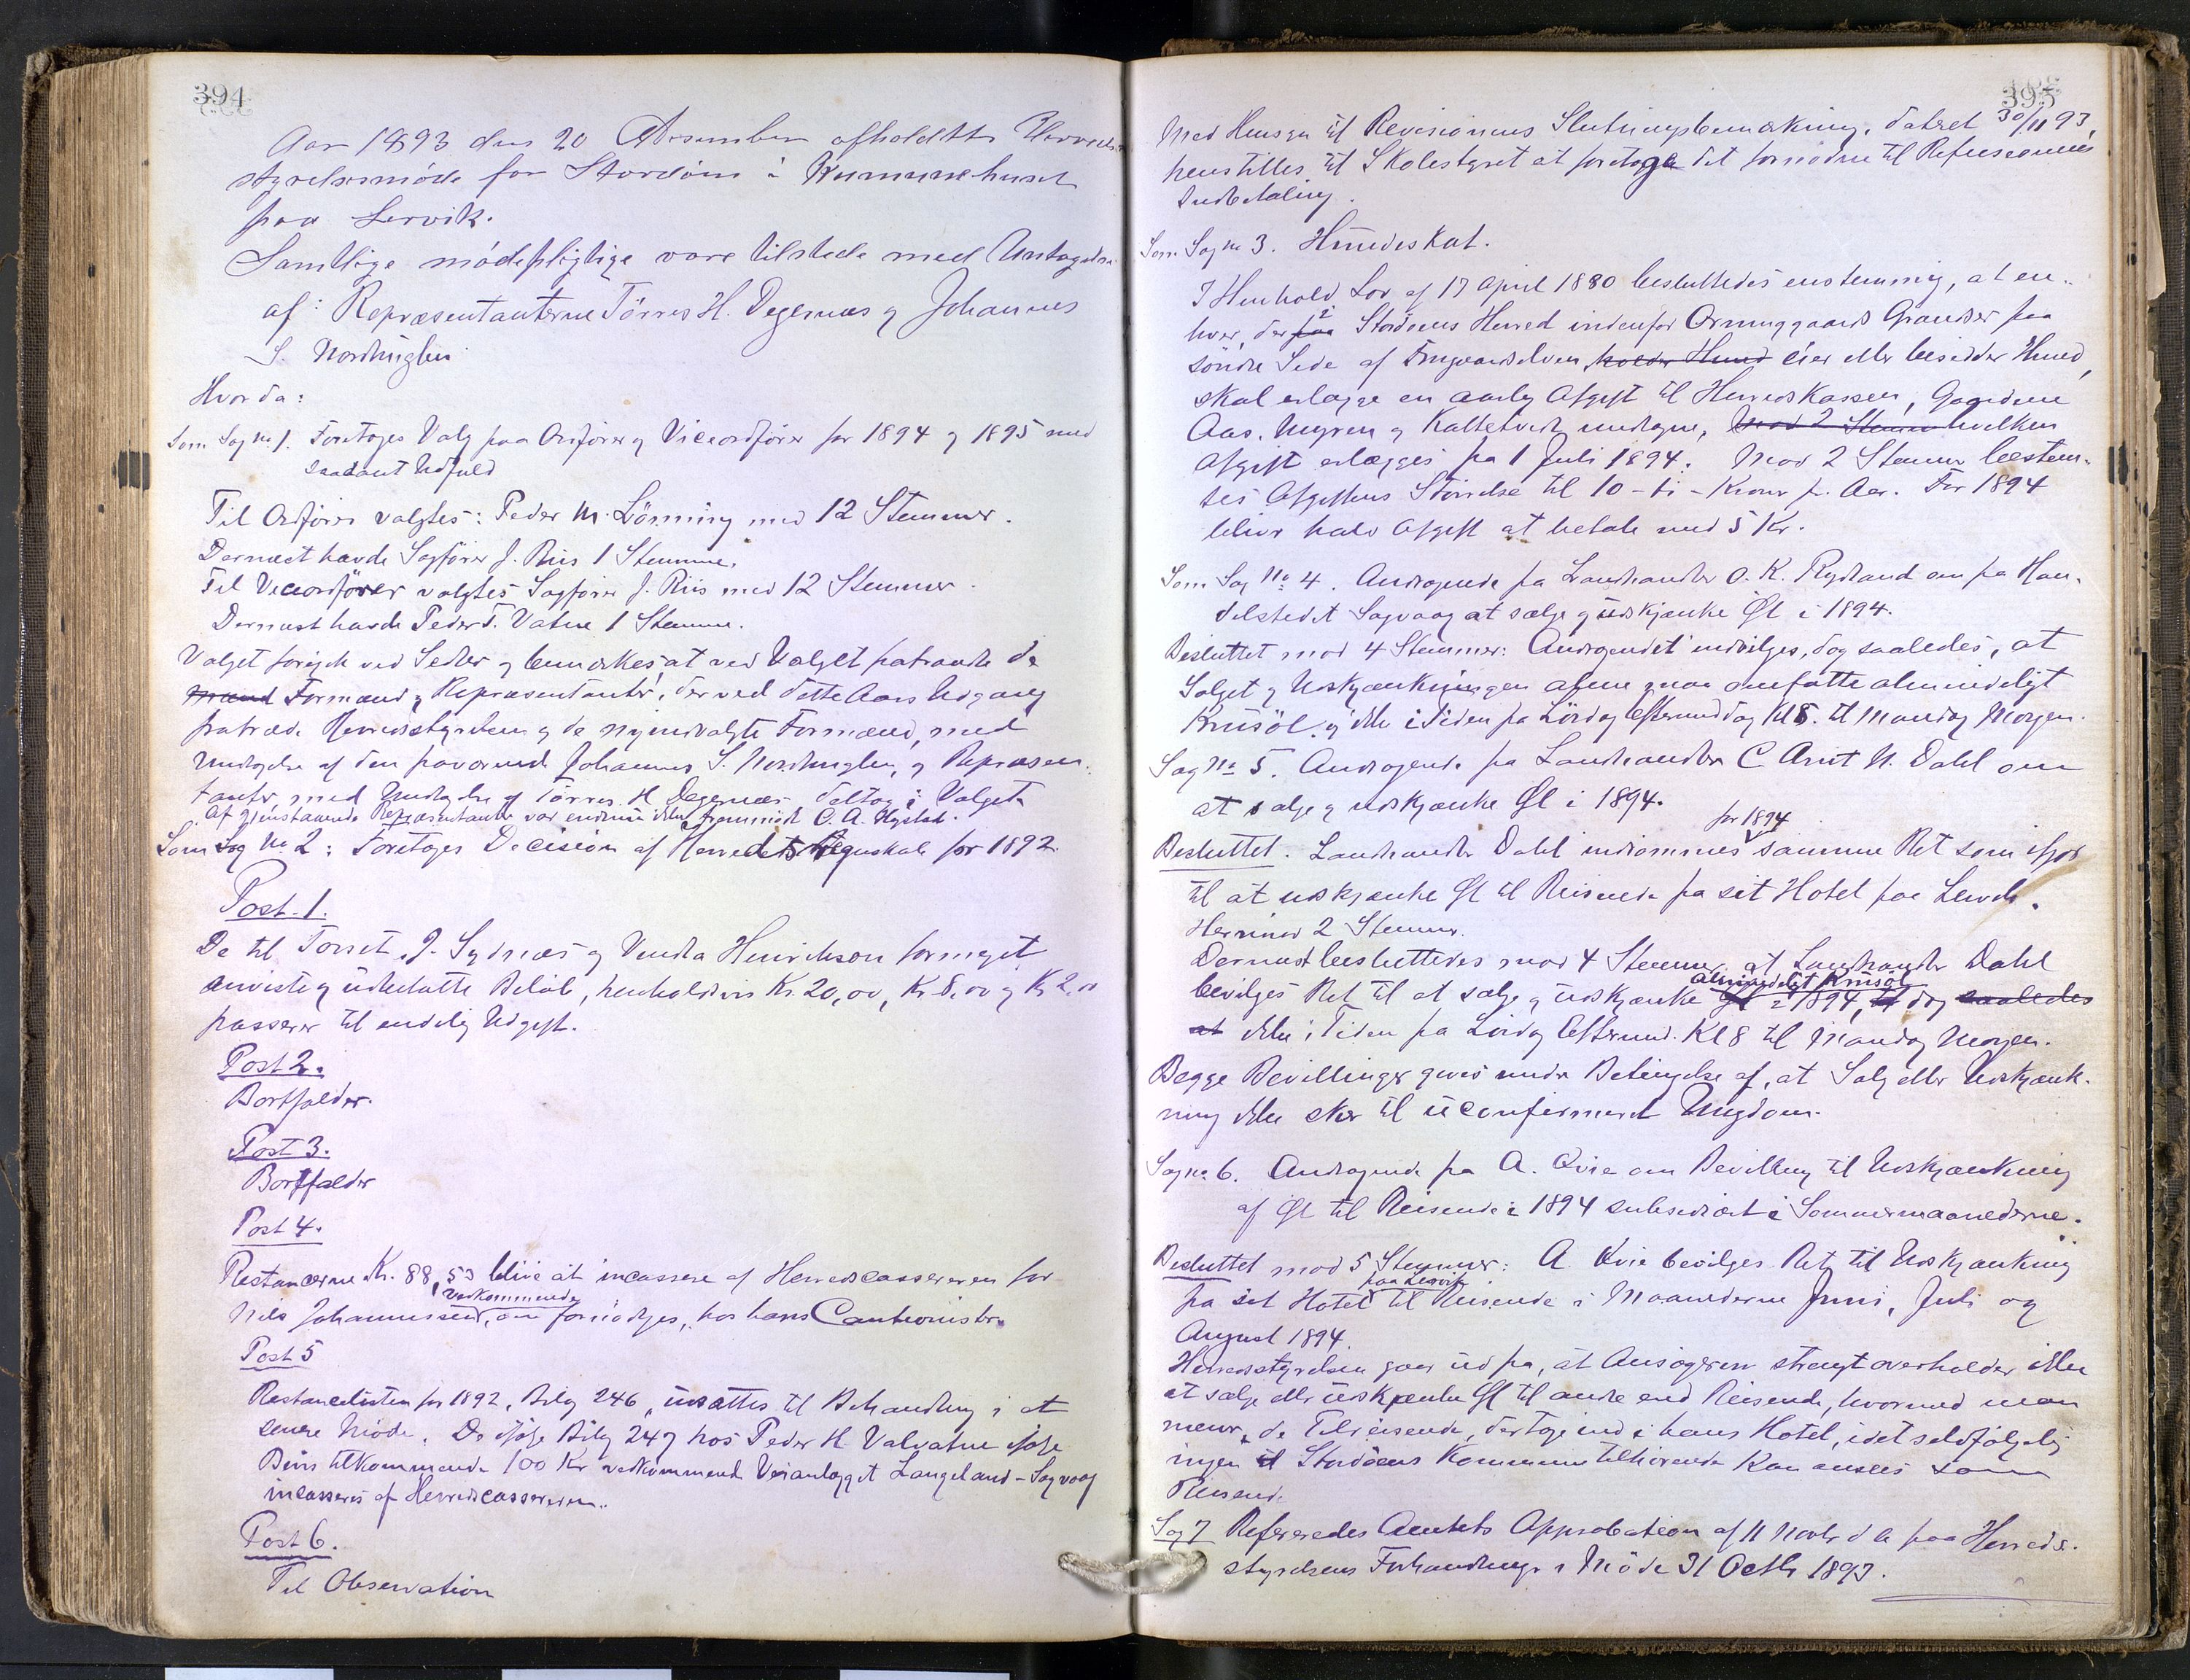 394
Aar 1893 den 20 Desember afholdtes Herreds
styrelsesmöde for Stordöen i Kommunehuset
paa Lervik.
Samtlige mödepligtige vare tilstede med Undtagelse
af: Repræsentanterne Törres H. Degernæs & Johannes
S. Nordhuglen
Hvorda:
Som Sag No 1. Foretoges Valg paa Ordförer & Viceordförer for 1894 & 1895 med
saadant Udfald
Til Ordförer valgtes: Peder M. Lönning med 12 Stemmer.
Dernæst havde Sagförer J. Riis 1 Stemme.
Til Viceordförer valgtes Sagförer J. Riis med 12 Stemmer.
Dernæst havde Peder T. Vatne 1 Stemme.
Valget foregik ved Sedler & bemærkes, at ved Valget fratraadte de
Mænd Formænd & Repræsentanter, der ved dette Aars Udgang
fratræde Herredsstyrelsen & de nyindvalgte Formænd, med
Undtagelse af den fraværende Johannes S. Nordhuglen, & Repræsen-
tanter, med Undtagelse af Törres H. Degernæs deltog i Valget.
Af gjenstaaende Repræsentanter var endnu ikke fremmödt C. A. Hystad.
Som Sag No 2: Foretoges Decision af Herredets Regnskab for 1892.
Post. 1.
De til Torset J. Sydnæs & Vendla Henrikson formeget
anviste & udbetalte Belöb, henholdsvis Kr. 20,00, Kr. 8,00 & Kr 2,00
passerer til endelig Udgift.
Post 2.
Bortfalder.
Post 3.
Bortfalder
Post 4.
Restancerne Kr. 88,53 blive at incassere af Herredscassereren for
vedkommende
Nils Johannessen, om fornödges, hos hans Cautionister.
Post 5
Restancelisten for 1892, Bilag 246, udsættes til Behandling i et
senere Möde. De ifölge Bilag 247 hos Peder H. Valvatne ifölge
Bevis tilkommende 100 Kr vedkommende Veianlægget Langeland-Sagvaag
incasseres af Herredscassereren.
Post 6.
Til Observation
395
Med Hensyn til Revisionens Slutningsbemærkning, dateret 30/11 93,
henstilles til Skolestyret at foretage det fornödne til Refusionernes
Indbetaling.
Som Sag No 3. Hundeskat.
I Henhold Lov af 17 April 1880 besluttedes enstemmig, at en-
hver, der paa i Stordöens Herred indenfor Grænser fra
söndre Side af holder Hund eier eller besidder Hund,
skal erlægge en aarlig Afgift til Herredskassen, Gaardene
Aas, Myren & Kattetvedt undtagne, mod 2 Stemmer hvilken
Afgift erlægges fra 1 Juli 1894. Mod 2 Stemmer bestem-
tes Afgiftens Störrelse til 10 - ti - Kroner pr. Aar. For 1894
bliver halv Afgift at betale med 5 Kr.
Som Sag No 4. Andragende fra Landhandler O. K. Rydland om fra Han-
delsstedet Sagvaag at sælge & udskjænke Öl i 1894.
Besluttet mod 4 Stemmer: Andragendet indvilges, dog saaledes, at
Salget & Udskjænkningen alene maa omfatte almindeligt
Krusöl, & ikke i Tiden fra Lördag Eftermiddag Kl 8. til Mandag Morgen.
Sag No 5. Andragende fra Landhandler C. Arnt N. Dahl om
at sælge & udskjænke Öl i 1894.
for 1894
Besluttet. Landhandler Dahl indrömmes samme Ret som ifjor
til at udskjænke Öl til Reisende fra sit Hotel paa Lervik.
Herimod 2 Stemmer.
Dernæst besluttedes mod 4 Stemmer, at Landhandler Dahl
almindeligt Krusöl
bevilges Ret til at sælge & udskjænke Öl i 1894, dog saaledes
at ikke i Tiden fra Lördag Efterm. Kl 8 til Mandag Morgen.
Begge Bevillinger gives under Betingelse af, at Salg eller Udskjænk-
ning ikke sker til uconfirmeret Ungdom.
Sag No 6. Andragende fra A. Qvie om Bevilling til Udskjænkning
af Öl til Reisende i 1894 subsidiært i Sommermaanederne.
Besluttet mod 5 Stemmer: A. Qvie bevilges Ret til Udskjænkning
paa Lervik
fra sit Hotel til Reisende i Maanederne Juni, Juli og
August 1894.
Herredsstyrelsen gaar ud fra, at Ansögeren strengt overholder ikke
at sælge eller udskjænke Öl til andre end Reisende, hvormed man
mener, de Tilreisende, der tage ind i hans Hotel, idet selvfölgelig
ingen Stordöens Kommune tilhörende kan ansees som
Reisende.
Sag 7 Refereredes Amtets Approbation af 11 Novbr d A paa Herreds-
styrelsens Forhandlinger i Möde 31 Octbr 1893.